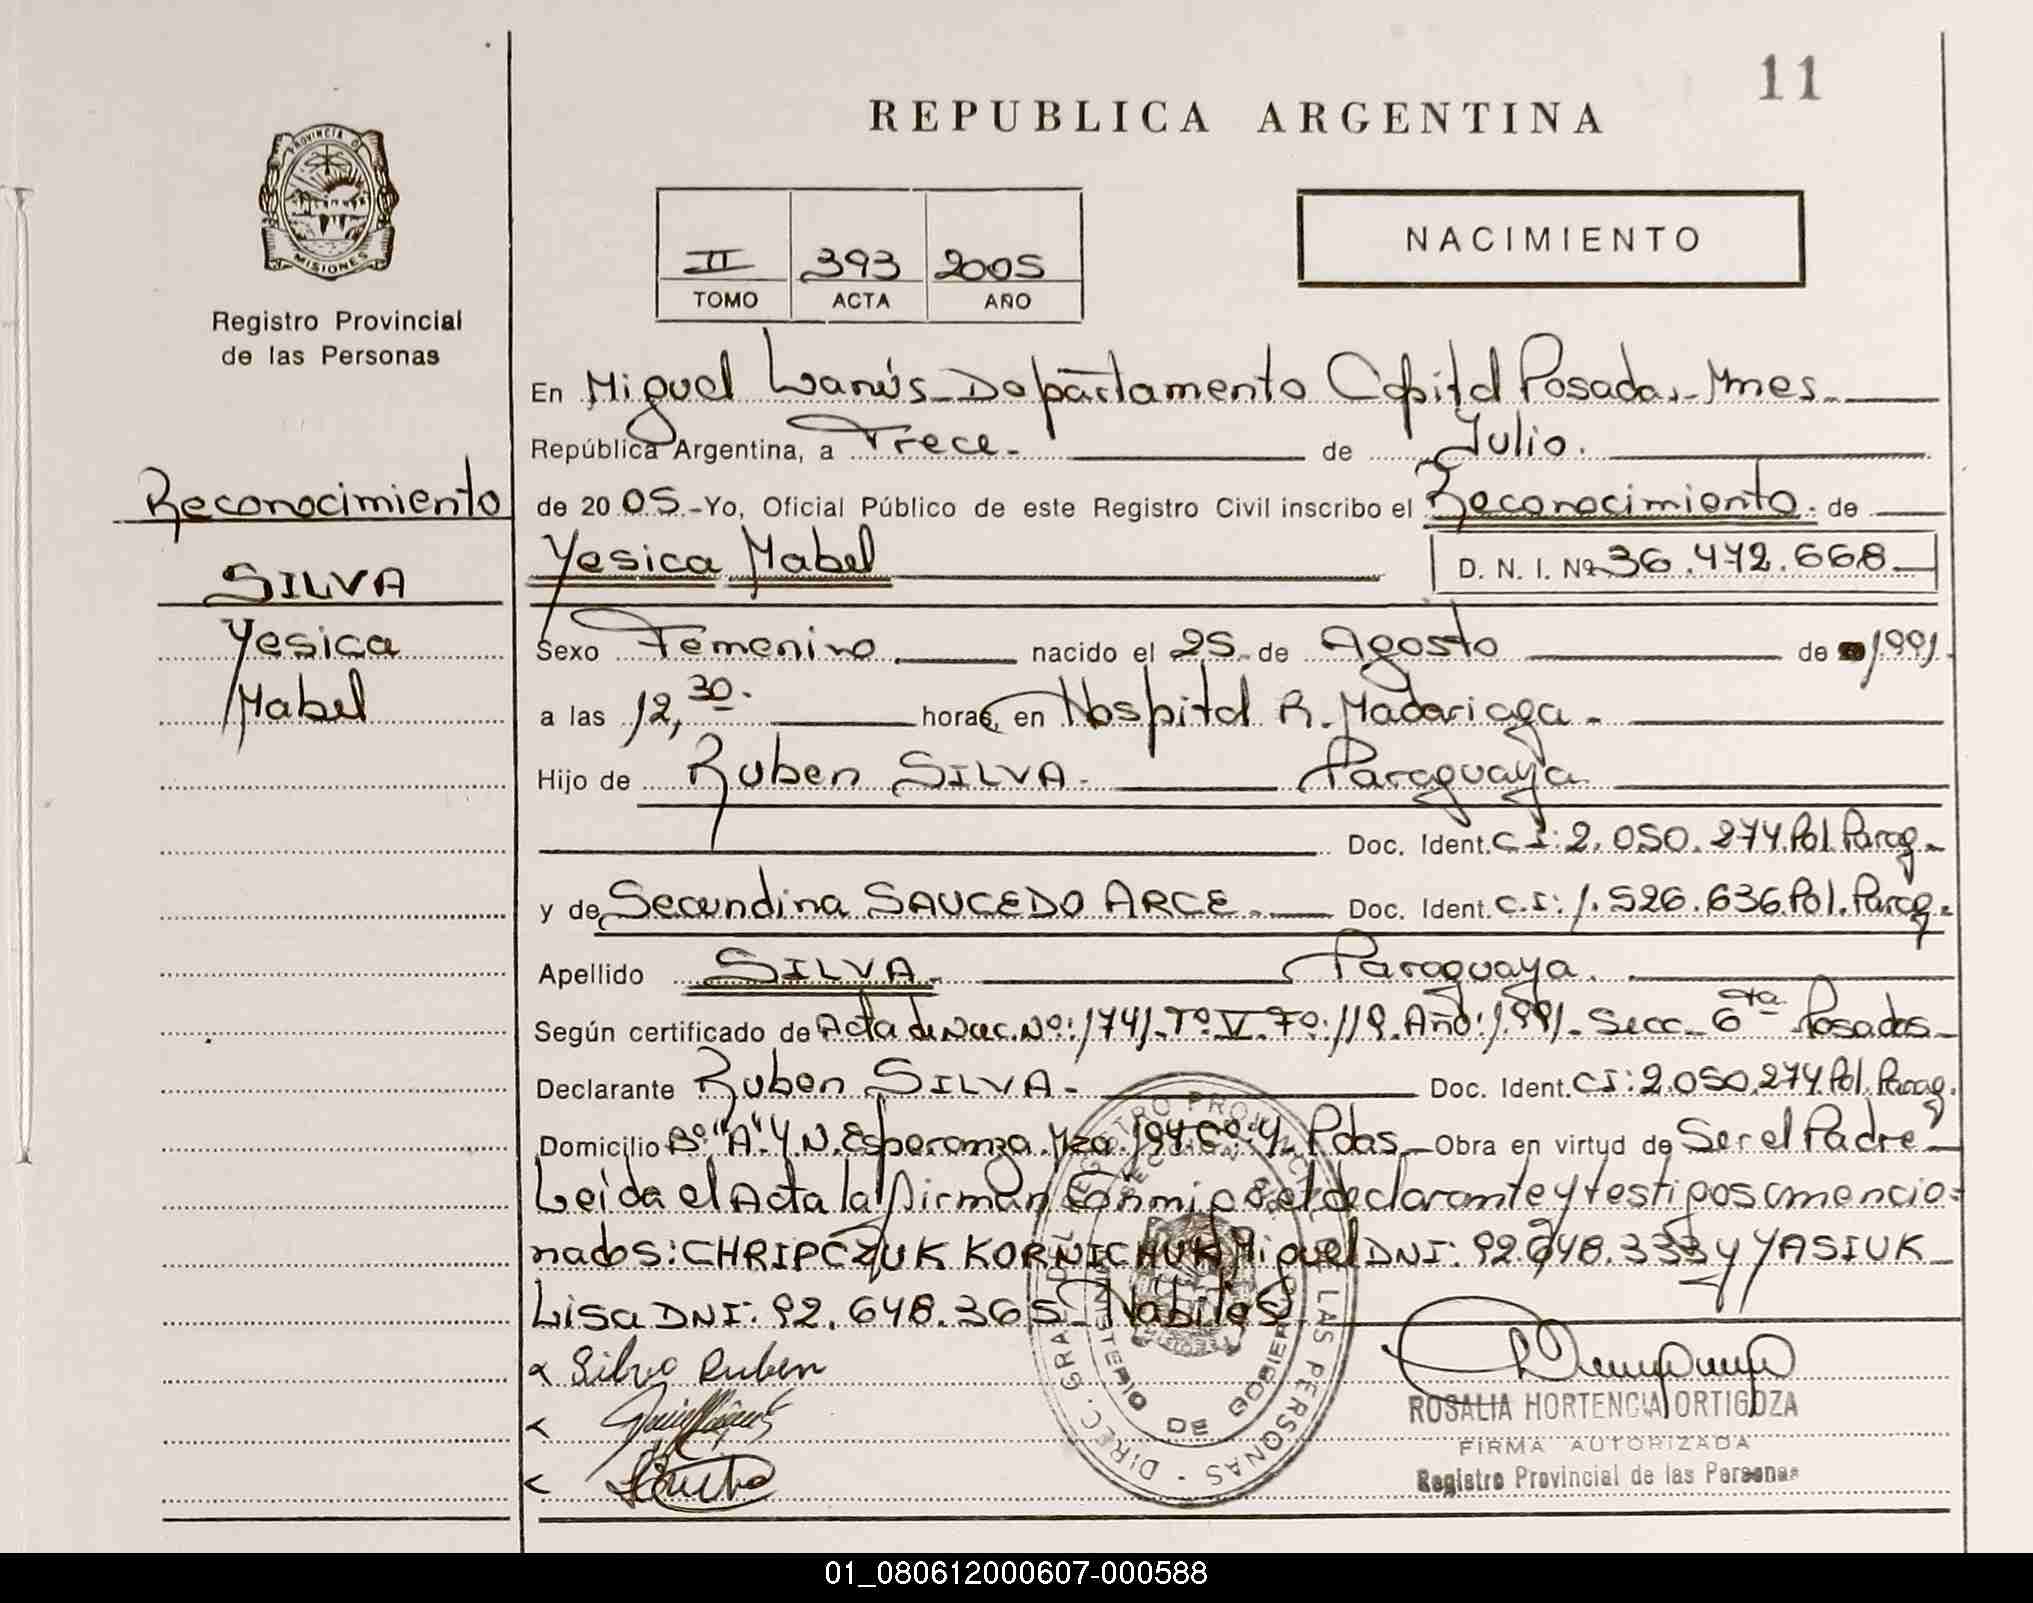 11
REPUBLICA ARGENTINA
PROVINCIA D
MISIONES
Registro Provincial
de las Personas
II 393 2005
TOMO ACTA AÑO
NACIMIENTO
En Miguel Lanús-Departamento Capital Posadas-Mnes-
República Argentina, a Trece- de Julio.
Reconocimiento
de 20 05.-Yo, Oficial Público de este Registro Civil inscribo el Reconocimiento. de
SILVA
Yesica Mabel D. N. I. Nº 36.472.668
Yesica
Mabel
Sexo Femenino. nacido el 25 de Agosto de 1991.
a las 12,30. horas, en Hospital R. Madariaga-
Hijo de Ruben SILVA- Paraguaya.
Doc. Ident. C I: 2.050.274 Pol. Parag-
y de Secundina SAUCEDO ARCE- Doc. Ident. C.I: 1.526.636 Pol. Parag-
Apellido SILVA- Paraguaya.
Según certificado de Acta de Nac. Nº: 1741-Tº V-Fº: 119. Año: 1991-Secc-6ta Posadas-
Declarante Ruben SILVA- Doc. Ident. CI: 2.050.274 Pol. Parag.
Domicilio Bº "A" 4 N. Esperanza. Mza. 194 Cº: 4. Pdas- Obra en virtud de Ser el Padre-
Leída el Acta la firman conmigo el declarante y testigos mencio=
nados: CHRIPCZUK KORNICHUK Miguel DNI: 92.648.333 y YASIUK
Lisa DNI: 92.648.365- Habiles
Silva Ruben
ROSALIA HORTENCIA ORTIGOZA
FIRMA AUTORIZADA
Registro Provincial de las Personas
DIREC. GRAL. DEL REGISTRO PROVINCIAL DE LAS PERSONAS
MINISTERIO DE GOBIERNO
01_080612000607-000588